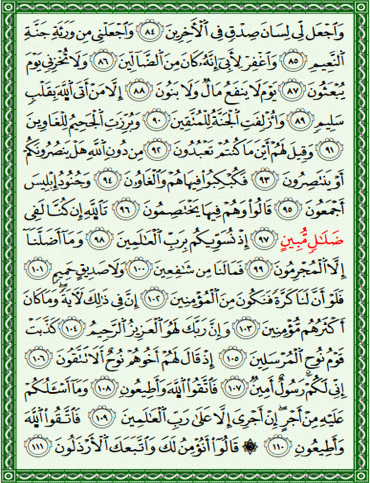 وَٱجْعَل لِّى لِسَانَ صِدْقٍ فِى ٱلْءَاخِرِينَ ٨٤ وَٱجْعَلْنِى مِن وَرَثَةِ جَنَّةِ
ٱلنَّعِيمِ ٨٥ وَٱغْفِرْ لِأَبِىٓ إِنَّهُۥ كَانَ مِنَ ٱلضَّآلِّينَ ٨٦ وَلَا تُخْزِنِى يَوْمَ
يُبْعَثُونَ ٨٧ يَوْمَ لَا يَنفَعُ مَالٌ وَلَا بَنُونَ ٨٨ إِلَّا مَنْ أَتَى ٱللَّهَ بِقَلْبٍ
سَلِيمٍ ٨٩ وَأُزْلِفَتِ ٱلْجَنَّةُ لِلْمُتَّقِينَ ٩٠ وَبُرِّزَتِ ٱلْجَحِيمُ لِلْغَاوِينَ
٩١ وَقِيلَ لَهُمْ أَيْنَ مَا كُنتُمْ تَعْبُدُونَ ٩٢ مِن دُونِ ٱللَّهِ هَلْ يَنصُرُونَكُمْ
أَوْ يَنتَصِرُونَ ٩٣ فَكُبْكِبُوا۟ فِيهَا هُمْ وَٱلْغَاوُۥنَ ٩٤ وَجُنُودُ إِبْلِيسَ
أَجْمَعُونَ ٩٥ قَالُوا۟ وَهُمْ فِيهَا يَخْتَصِمُونَ ٩٦ تَٱللَّهِ إِن كُنَّا لَفِى
ضَلَٰلٍ مُّبِينٍ ٩٧ إِذْ نُسَوِّيكُم بِرَبِّ ٱلْعَٰلَمِينَ ٩٨ وَمَآ أَضَلَّنَآ
إِلَّا ٱلْمُجْرِمُونَ ٩٩ فَمَا لَنَا مِن شَٰفِعِينَ ١٠٠ وَلَا صَدِيقٍ حَمِيمٍ ١٠١
فَلَوْ أَنَّ لَنَا كَرَّةً فَنَكُونَ مِنَ ٱلْمُؤْمِنِينَ ١٠٢ إِنَّ فِى ذَٰلِكَ لَءَايَةً ۖ وَمَا كَانَ
أَكْثَرُهُم مُّؤْمِنِينَ ١٠٣ وَإِنَّ رَبَّكَ لَهُوَ ٱلْعَزِيزُ ٱلرَّحِيمُ ١٠٤ كَذَّبَتْ
قَوْمُ نُوحٍ ٱلْمُرْسَلِينَ ١٠٥ إِذْ قَالَ لَهُمْ أَخُوهُمْ نُوحٌ أَلَا تَتَّقُونَ ١٠٦
إِنِّى لَكُمْ رَسُولٌ أَمِينٌ ١٠٧ فَٱتَّقُوا۟ ٱللَّهَ وَأَطِيعُونِ ١٠٨ وَمَآ أَسْـَٔلُكُمْ
عَلَيْهِ مِنْ أَجْرٍ ۖ إِنْ أَجْرِىَ إِلَّا عَلَىٰ رَبِّ ٱلْعَٰلَمِينَ ١٠٩ فَٱتَّقُوا۟ ٱللَّهَ
وَأَطِيعُونِ ١١٠ ۞ قَالُوٓا۟ أَنُؤْمِنُ لَكَ وَٱتَّبَعَكَ ٱلْأَرْذَلُونَ ١١١